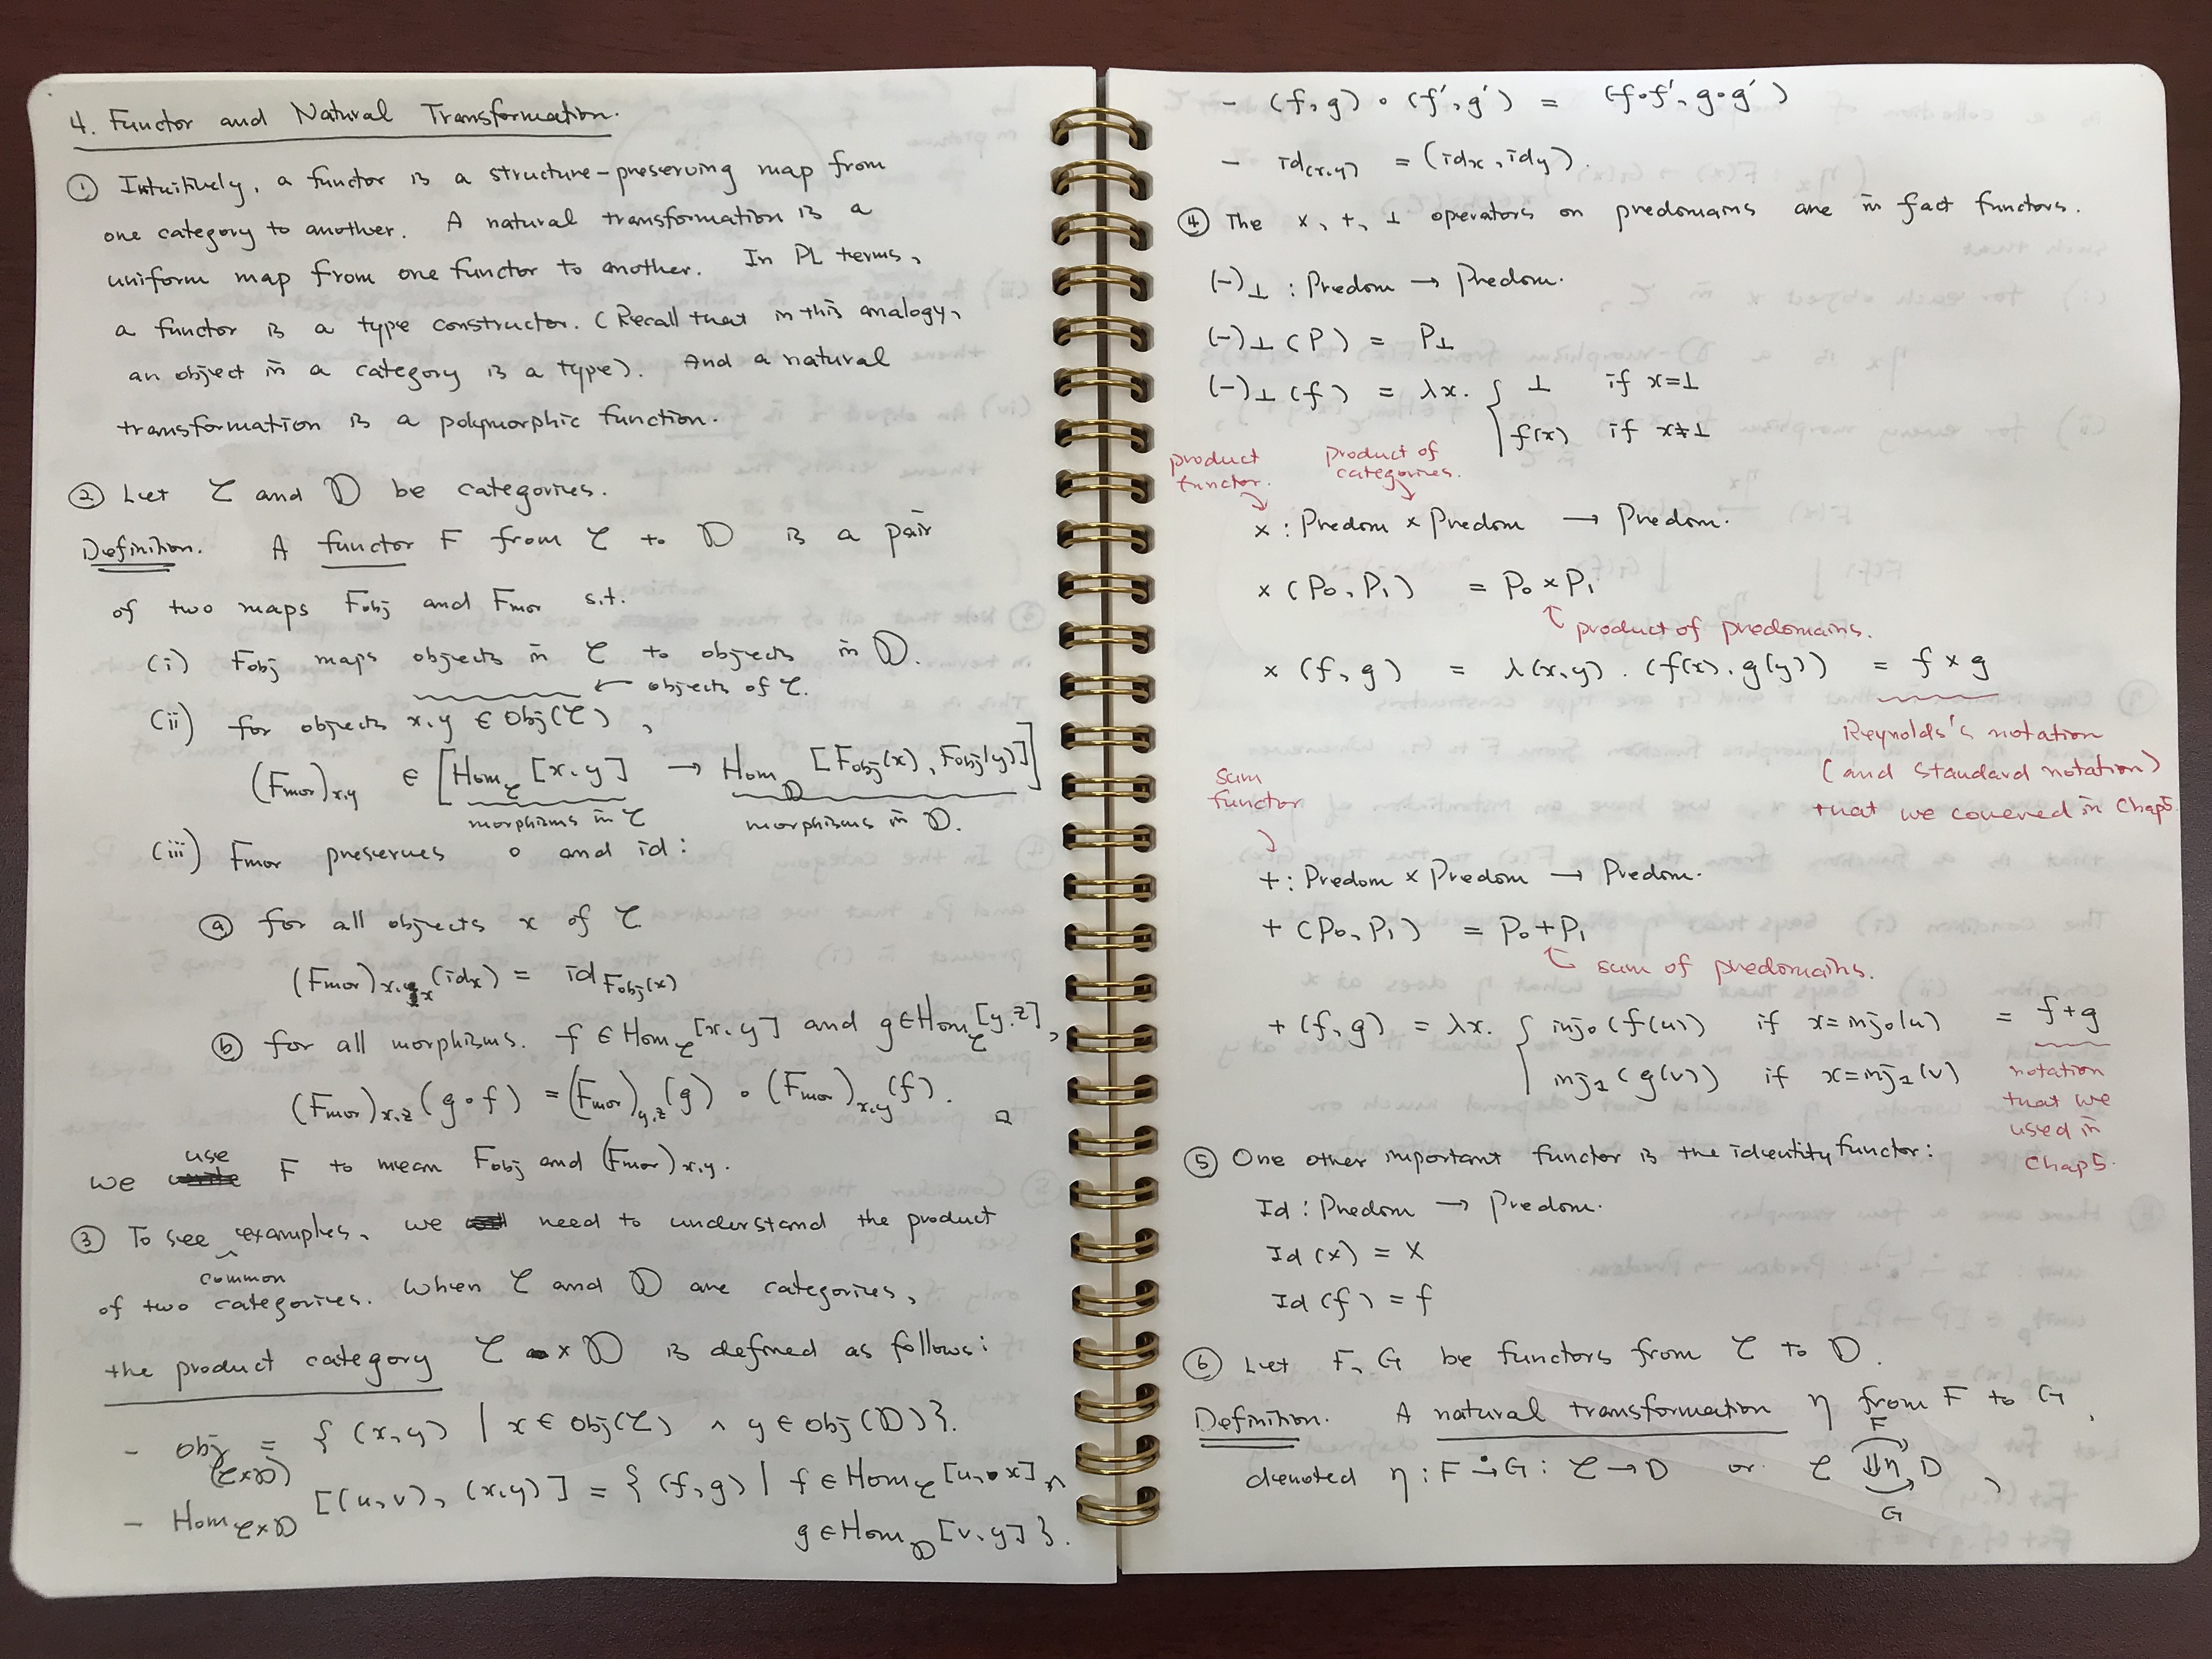 4. Functor and Natural Transformation.
① Intuitively, a functor is a structure-preserving map from
one category to another. A natural transformation is a
uniform map from one functor to another. In PL terms,
a functor is a type constructor. (Recall that in this analogy,
an object in a category is a type). And a natural
transformation is a polymorphic function.
② Let 𝒞 and 𝔻 be categories.
Definition. A functor F from 𝒞 to 𝔻 is a pair
of two maps Fobj and Fmor s.t.
(i) Fobj maps objects in 𝒞 to objects in 𝔻.
← objects of 𝒞.
(ii) for objects x,y ∈ Obj(𝒞),
(Fmor)x,y ∈ [Hom𝒞[x,y] → Hom𝔻[Fobj(x), Fobj(y)]]
morphisms in 𝒞 morphisms in 𝔻.
(iii) Fmor preserves ∘ and id:
ⓐ for all objects x of 𝒞
(Fmor)x,x(idx) = idFobj(x)
ⓑ for all morphisms. f ∈ Hom𝒞[x,y] and g ∈ Hom𝒞[y,z],
(Fmor)x,z(g∘f) = (Fmor)y,z(g) ∘ (Fmor)x,y(f). □
we use F to mean Fobj and (Fmor)x,y.
③ To see examples, we need to understand the product
common
of two categories. When 𝒞 and 𝔻 are categories,
the product category 𝒞 × 𝔻 is defined as follows:
- obj(𝒞×𝔻) = { (x,y) | x ∈ Obj(𝒞) ∧ y ∈ Obj(𝔻)}.
- Hom𝒞×𝔻[(u,v), (x,y)] = { (f,g) | f ∈ Hom𝒞[u,x] ∧
g ∈ Hom𝔻[v,y] }.
- (f,g) ∘ (f',g') = (f∘f', g∘g')
- id(x,y) = (idx, idy).
④ The ×, +, ⊥ operators on predomains are in fact functors.
(-)⊥ : Predom → Predom.
(-)⊥(P) = P⊥
(-)⊥(f) = λx. { ⊥ if x=⊥
f(x) if x≠⊥
product functor. product of categories.
× : Predom × Predom → Predom.
×(P0, P1) = P0 × P1
product of predomains.
×(f, g) = λ(x,y). (f(x), g(y)) = f × g
Reynolds's notation
(and standard notation)
that we covered in Chap5
sum
functor
+ : Predom × Predom → Predom.
+(P0, P1) = P0 + P1
sum of predomains.
+(f, g) = λx. { inj0(f(u)) if x=inj0(u) = f+g
inj1(g(v)) if x=inj1(v)
notation
that we
used in
Chap5.
⑤ One other important functor is the identity functor:
Id : Predom → Predom.
Id(x) = X
Id(f) = f
⑥ Let F, G be functors from 𝒞 to 𝔻.
Definition. A natural transformation η from F to G,
denoted η : F →̇ G : 𝒞 → D or 𝒞 F ⇓η G D,